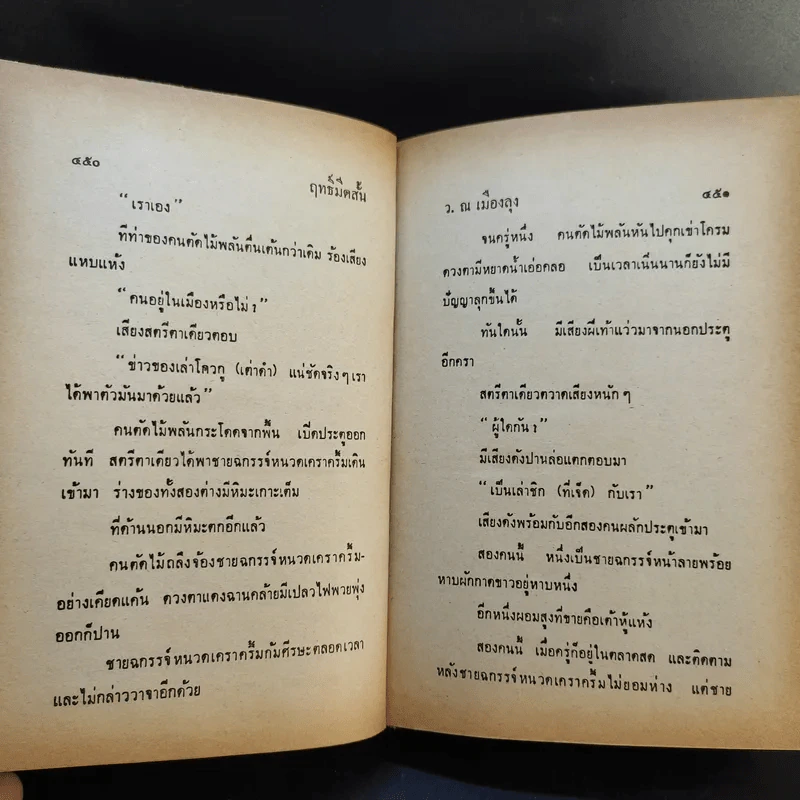 ๔๕๐
ฤทธิ์มีดสั้น
“เราเอง”
ทีท่าของคนตัดไม้พลันตื่นเต้นกว่าเดิม ร้องเสียง
แหบแห้ง
“คนอยู่ในเมืองหรือไม่?”
เสียงสตรีตาเดียวตอบ
“ข่าวของเล่าโจวกู (เต่าดำ) แน่ชัดจริงๆ เรา
ได้พาตัวมันมาด้วยแล้ว”
คนตัดไม้พลันกระโดดจากพื้น เปิดประตูออก
ทันที สตรีตาเดียวได้พาชายฉกรรจ์หนวดเคราครึ้มเดิน
เข้ามา ร่างของทั้งสองต่างมีหิมะเกาะเต็ม
ที่ด้านนอกมีหิมะตกอีกแล้ว
คนตัดไม้ถลึงจ้องชายฉกรรจ์หนวดเคราครึ้ม-
อย่างเคียดแค้น ดวงตาแดงฉานคล้ายมีเปลวไฟพวยพุ่ง
ออกก็ปาน
ชายฉกรรจ์หนวดเคราครึ้มก้มศีรษะตลอดเวลา
และไม่กล่าววาจาอีกด้วย
ว. ณ เมืองลุง
๔๕๑
จนครู่หนึ่ง คนตัดไม้พลันหันไปคุกเข่าโครม
ดวงตามีหยาดน้ำเอ่อคลอ เป็นเวลาเนิ่นนานก็ยังไม่มี
ปัญญาลุกขึ้นได้
ทันใดนั้น มีเสียงฝีเท้าแว่วมาจากนอกประตู
อีกครา
สตรีตาเดียวตวาดเสียงหนักๆ
“ผู้ใดกัน?”
มีเสียงดังปานล่อแตกตอบมา
“เป็นเล่าชิก (ที่เจ็ด) กับเรา”
เสียงดังพร้อมกับอีกสองคนผลักประตูเข้ามา
สองคนนี้ หนึ่งเป็นชายฉกรรจ์หน้าลายพร้อย
หาบผักกาดขาวอยู่หาบหนึ่ง
อีกหนึ่งผอมสูงที่ขายคือเต้าหู้แห้ง
สองคนนี้ เมื่อครู่ก็อยู่ในตลาดสด และติดตาม
หลังชายฉกรรจ์หนวดเคราครึ้มไม่ยอมห่าง แต่ชาย